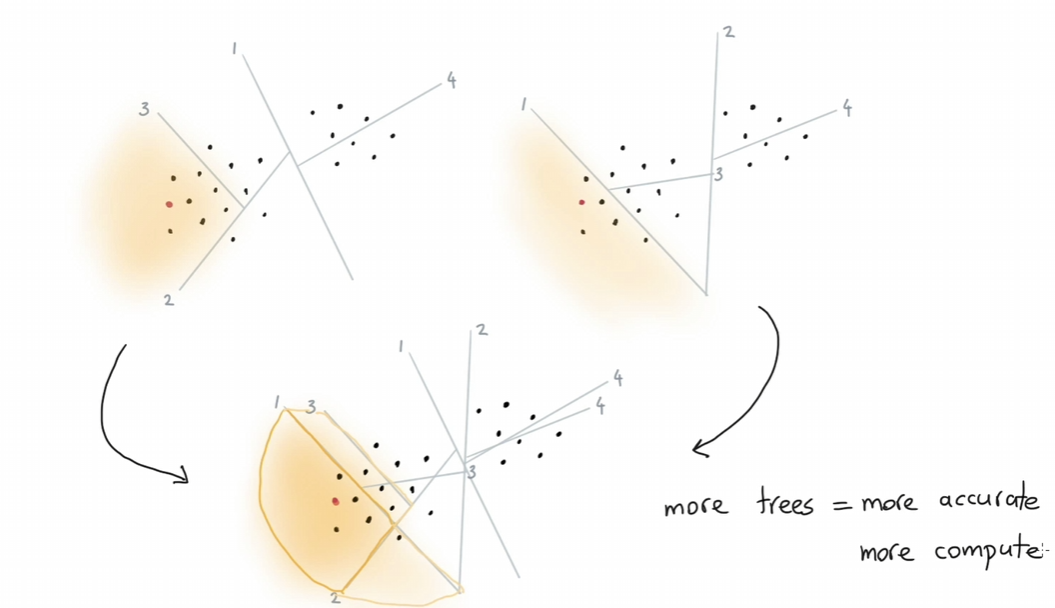 1
4
3
2
2
1
4
3
2
1
4
1 3
4
3
2
more trees = more accurate
more compute